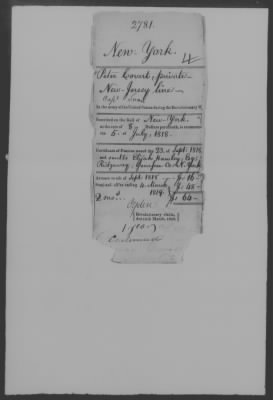 2781.
New-York.
4
Peter Covert, private
New-Jersey line
Capt
in the army of the United States during the Revolutionary
Inscribed on the Roll of New-York.
at the rate of 8 Dollars per month, to commence
on 6. of July, 1818.
Certificate of Pension issued the 23. of Sept. 1818
and sent to Elijah Hawley, Esq.
Ridgeway, Genesee Co. N. York
Arrears to 4th of Sept. 1818 $ 16
Semi-anl. all'ce ending 4 March 1819 $ 48
2 mos $ 64
Revolutionary claim,
Act 18th March, 1818.